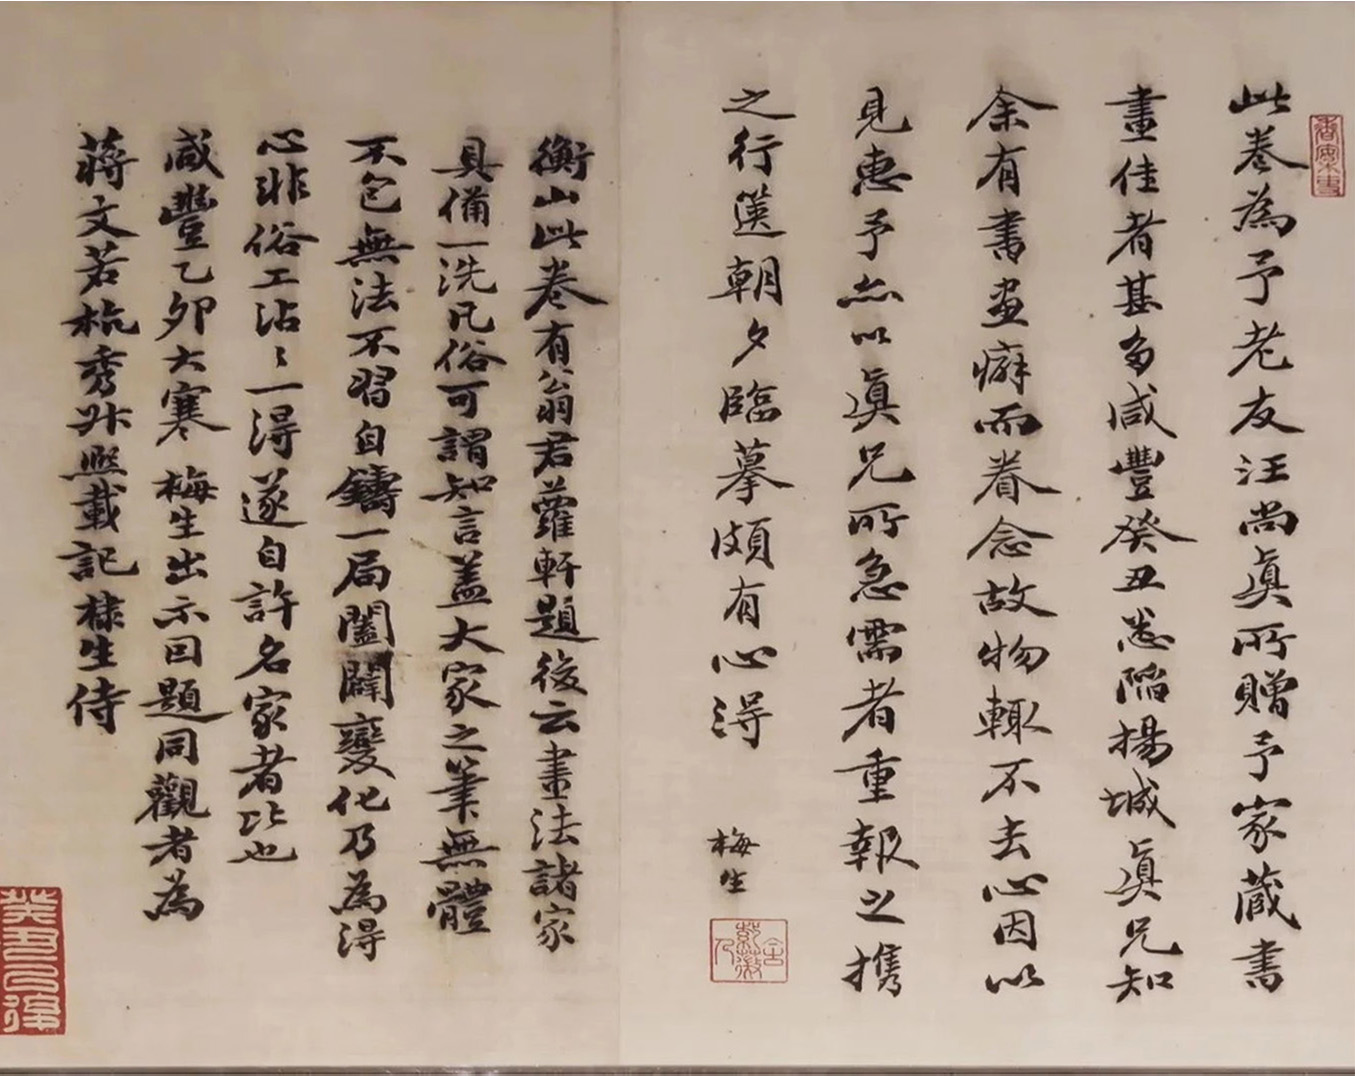 此卷為予老友汪尚真所贈予家藏書
畫佳者甚多咸豐癸丑悉陷揚城真兄知
余有書画癖而眷念故物輒不去心因以
見惠予亦以真兄所急需者重報之携
之行篋朝夕臨摹頗有心得
梅生
衡山此卷有翁君蘿軒題後云畫法諸家
具備一洗凡俗可謂知言蓋大家之筆無體
不包無法不習自鑄一局闔闢變化乃為得
心非俗工沾〻一得遂自許名家者比也
咸豐乙卯大寒梅生出示因題同觀者為
蔣文若杭秀升熙載記棣生侍